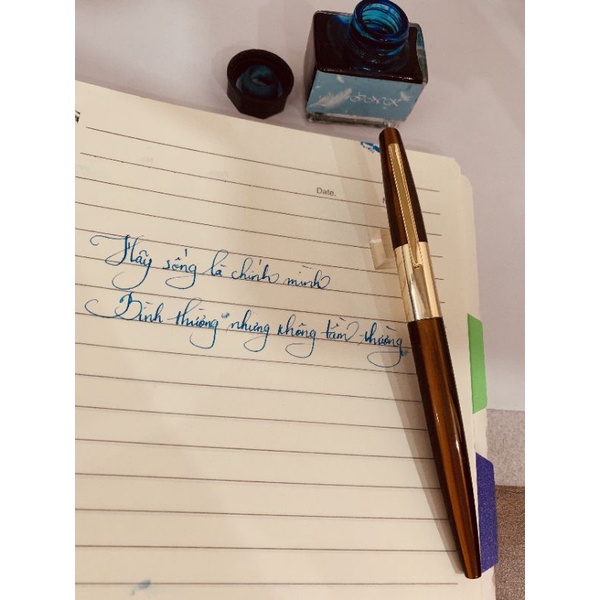 Date.
Hãy sống là chính mình
Bình thường nhưng không tầm thường